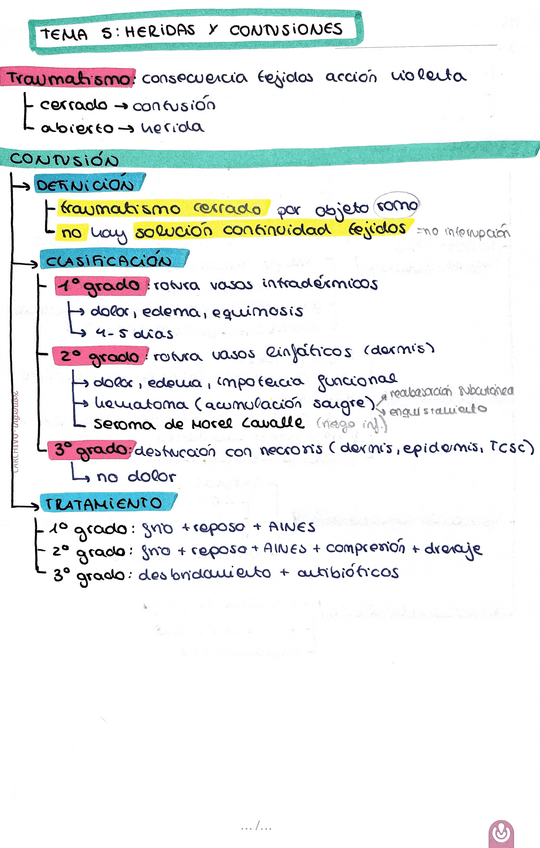 TEMA 5: HERIDAS Y CONTUSIONES
Traumatismo: consecuencia tejidos acción violenta
cerrado → contusión
abierto → herida
CONTUSIÓN
DEFINICIÓN
traumatismo cerrado por objeto romo
no hay solución continuidad tejidos = no interrupción
CLASIFICACIÓN
1º grado: rotura vasos intradérmicos
dolor, edema, equimosis
4-5 días
2º grado: rotura vasos linfáticos (dermis)
dolor, edema, impotencia funcional
hematoma (acumulación sangre) reabsorción subcutánea
enquistamiento
seroma de Morel Lavalle (riesgo inf.)
3º grado: destrucción con necrosis (dermis, epidermis, TCSC)
no dolor
TRATAMIENTO
1º grado: frío + reposo + AINES
2º grado: frío + reposo + AINES + compresión + drenaje
3º grado: desbridamiento + antibióticos
.../...